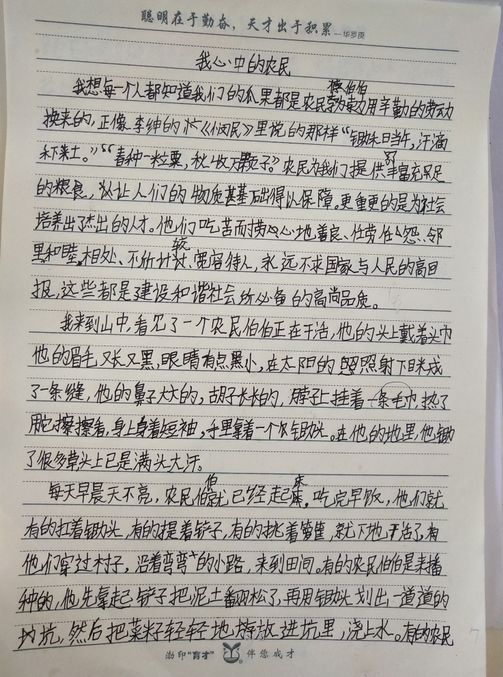 聪明在于勤奋，天才出于积累—华罗庚
我心中的农民
我想每一个人都知道我们的瓜果都是农民伯伯勤勤用辛勤的劳动
换来的，正像李绅的《悯农》里说的那样“锄禾日当午，汗滴
禾下土。”“春种一粒粟，秋收万颗子。”农民为我们提供了丰富充足
的粮食，以让人们的物质甚基础得以保障。更重更的是为社会
培养出了杰出的人才。他们吃苦而劳心地善良、任劳任怨、邻
里和睦相处、不斤计较、宽容待人，永远不求国家与人民的高回
报，这些都是建设和谐社会所必备的高尚品质。
我来到山中，看见了一个农民伯伯正在干活，他的头上戴着头巾
他的眉毛又长又黑，眼睛有点黑小，在太阳的照射下眯成
了一条缝，他的鼻子大大的，胡子长长的，脖子上挂着一条毛巾，热了
用它擦擦看，身上身着短袖，手里拿着一个小锄头。在他的地里，他锄
了很多草头上已是满头大汗。
每天早晨天不亮，农民伯伯就已经起床。吃完早饭，他们就
有的扛着锄头，有的提着铲子，有的挑着箩筐，就下地干活了，有
他们穿过村子，沿着弯弯的小路，来到田间。有的农民伯伯是来播
种的，他先拿起铲子把泥土翻松了，再用锄头划出一道道的
坑，然后把菜籽轻轻地放进坑里，浇上水。有的农民
渤印“育才” 伴您成才